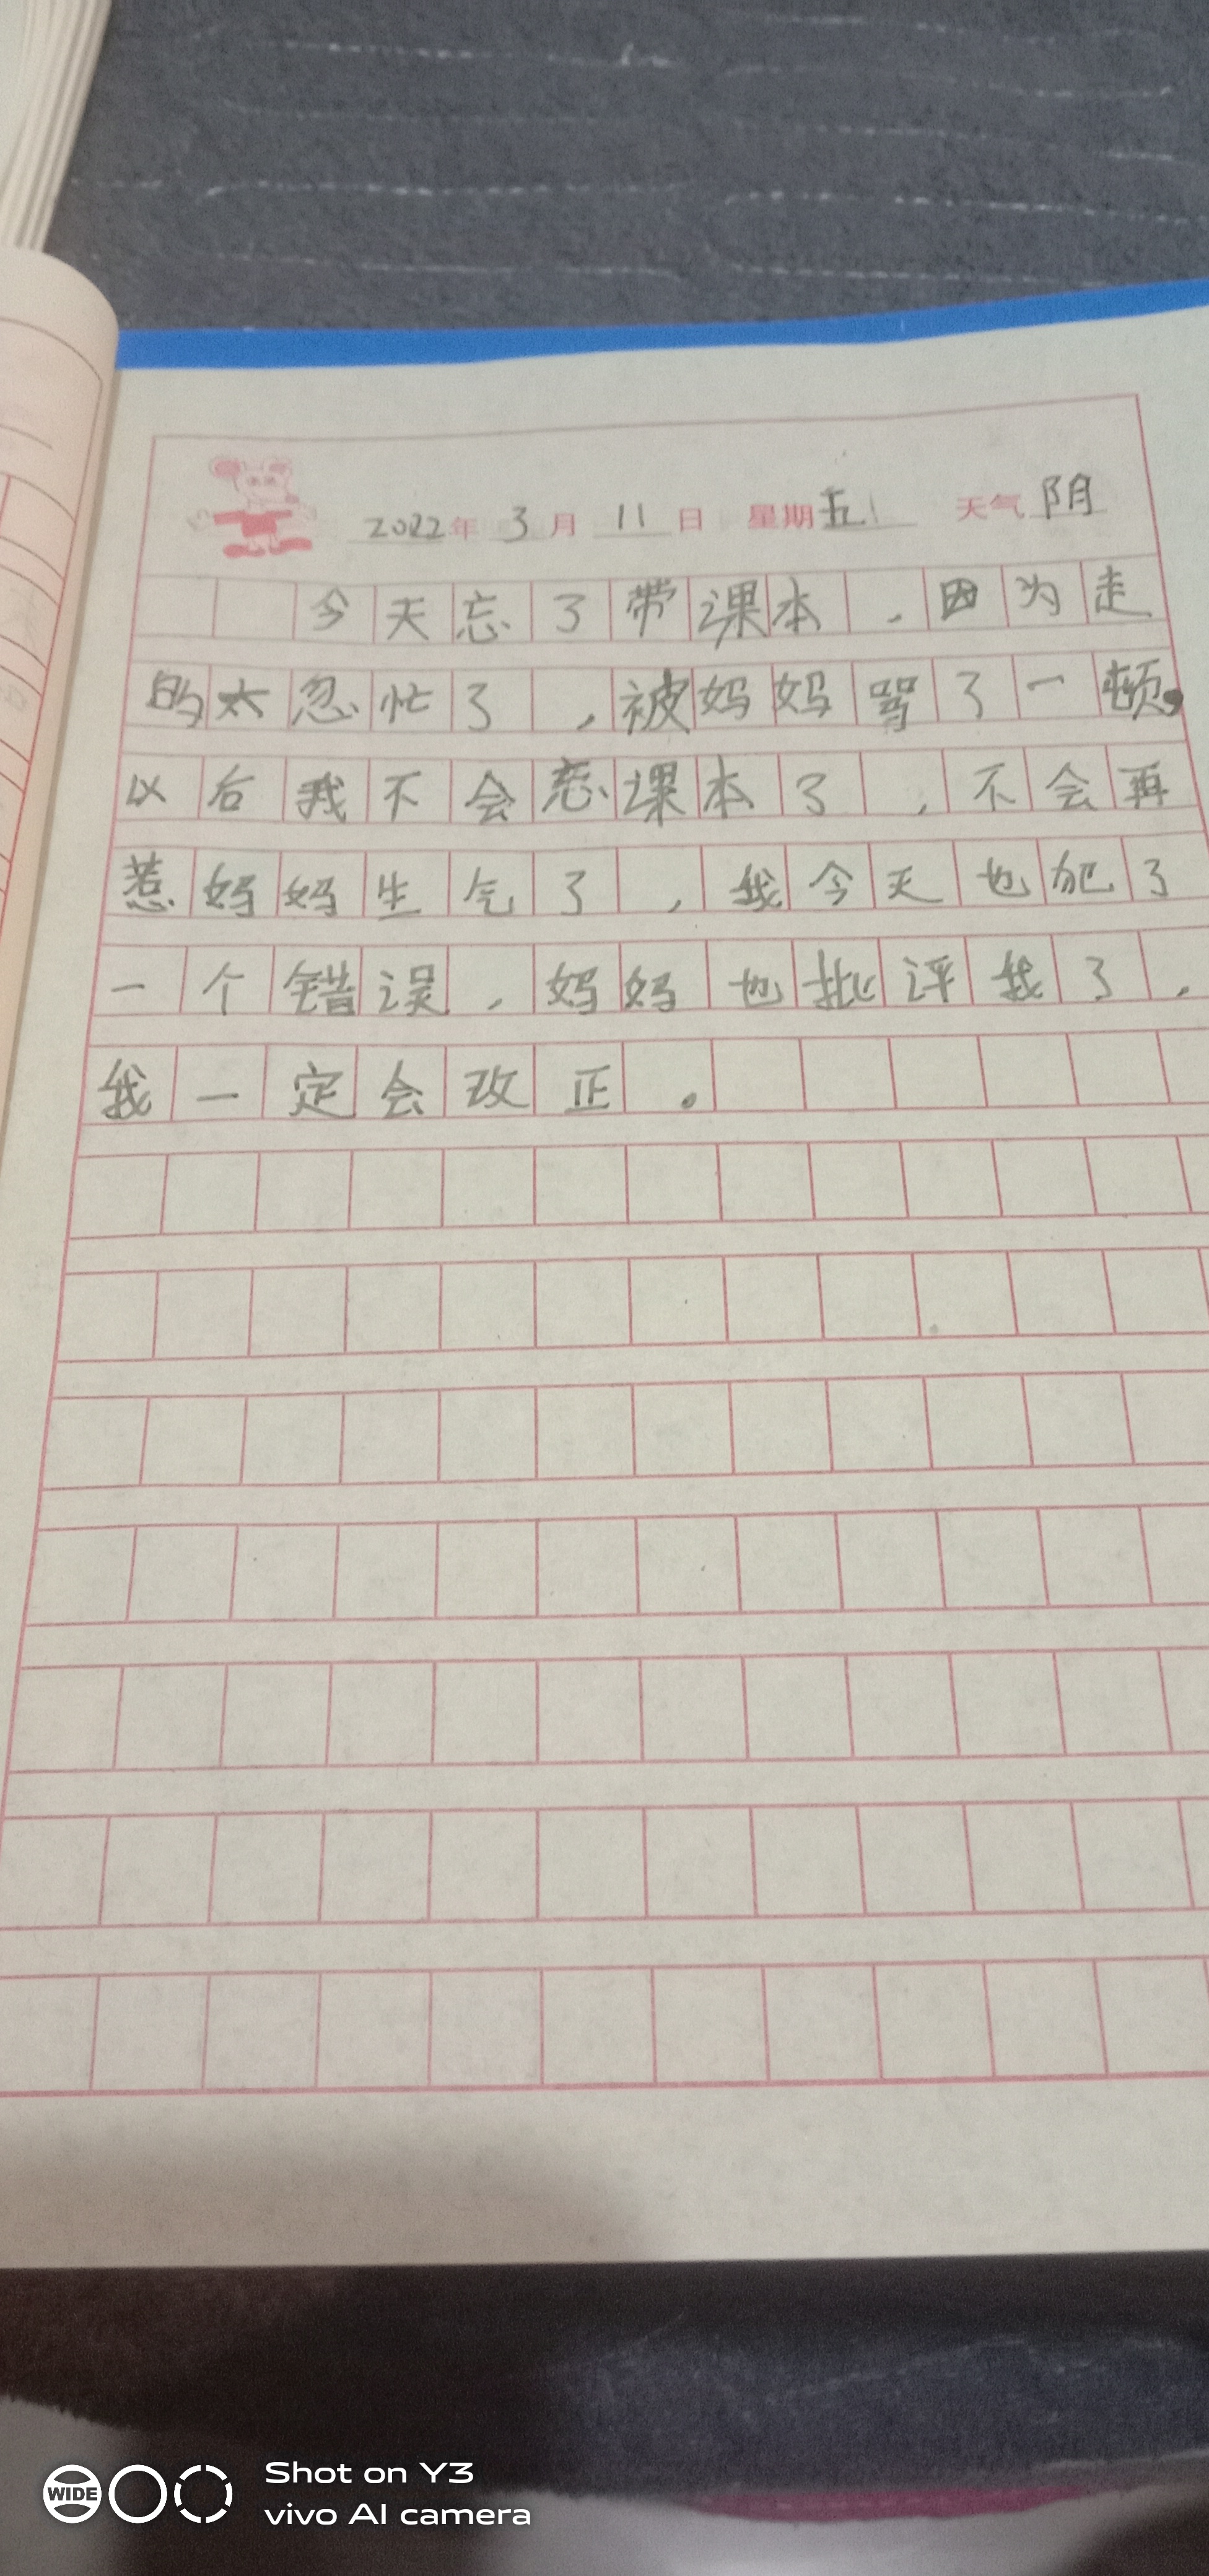 2022年 3月 11日 星期五 天气阴
今天忘了带课本,因为走
的太忽忙了,被妈妈骂了一顿,
以后我不会忘课本了,不会再
惹妈妈生气了,我今天也犯了
一个错误,妈妈也批评我了,
我一定会改正。
WIDE
Shot on Y3
vivo AI camera